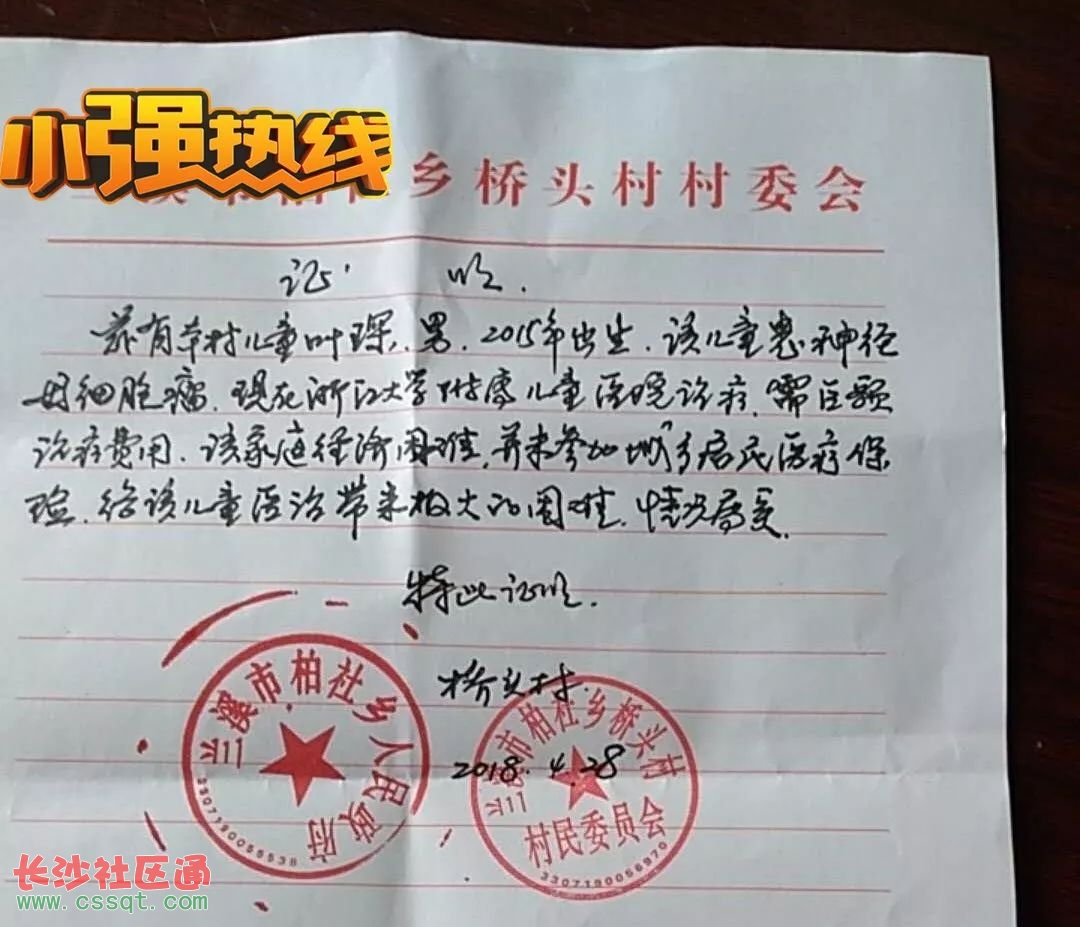 小强热线
乡桥头村村委会
证 明.
兹有本村儿童叶琛,男,2015年出生,该儿童患神经
母细胞瘤,现在浙江大学附属儿童医院诊疗,需巨额
治疗费用,该家庭经济困难,并未参加城乡居民医疗保
险,给该儿童医治带来极大的困难,情况属实.
特此证明.
桥头村
2018.4.28
兰溪市柏社乡人民政府
3307190055538
兰溪市柏社乡桥头村
村民委员会
3307190056970
长沙社区通
www.cssqt.com